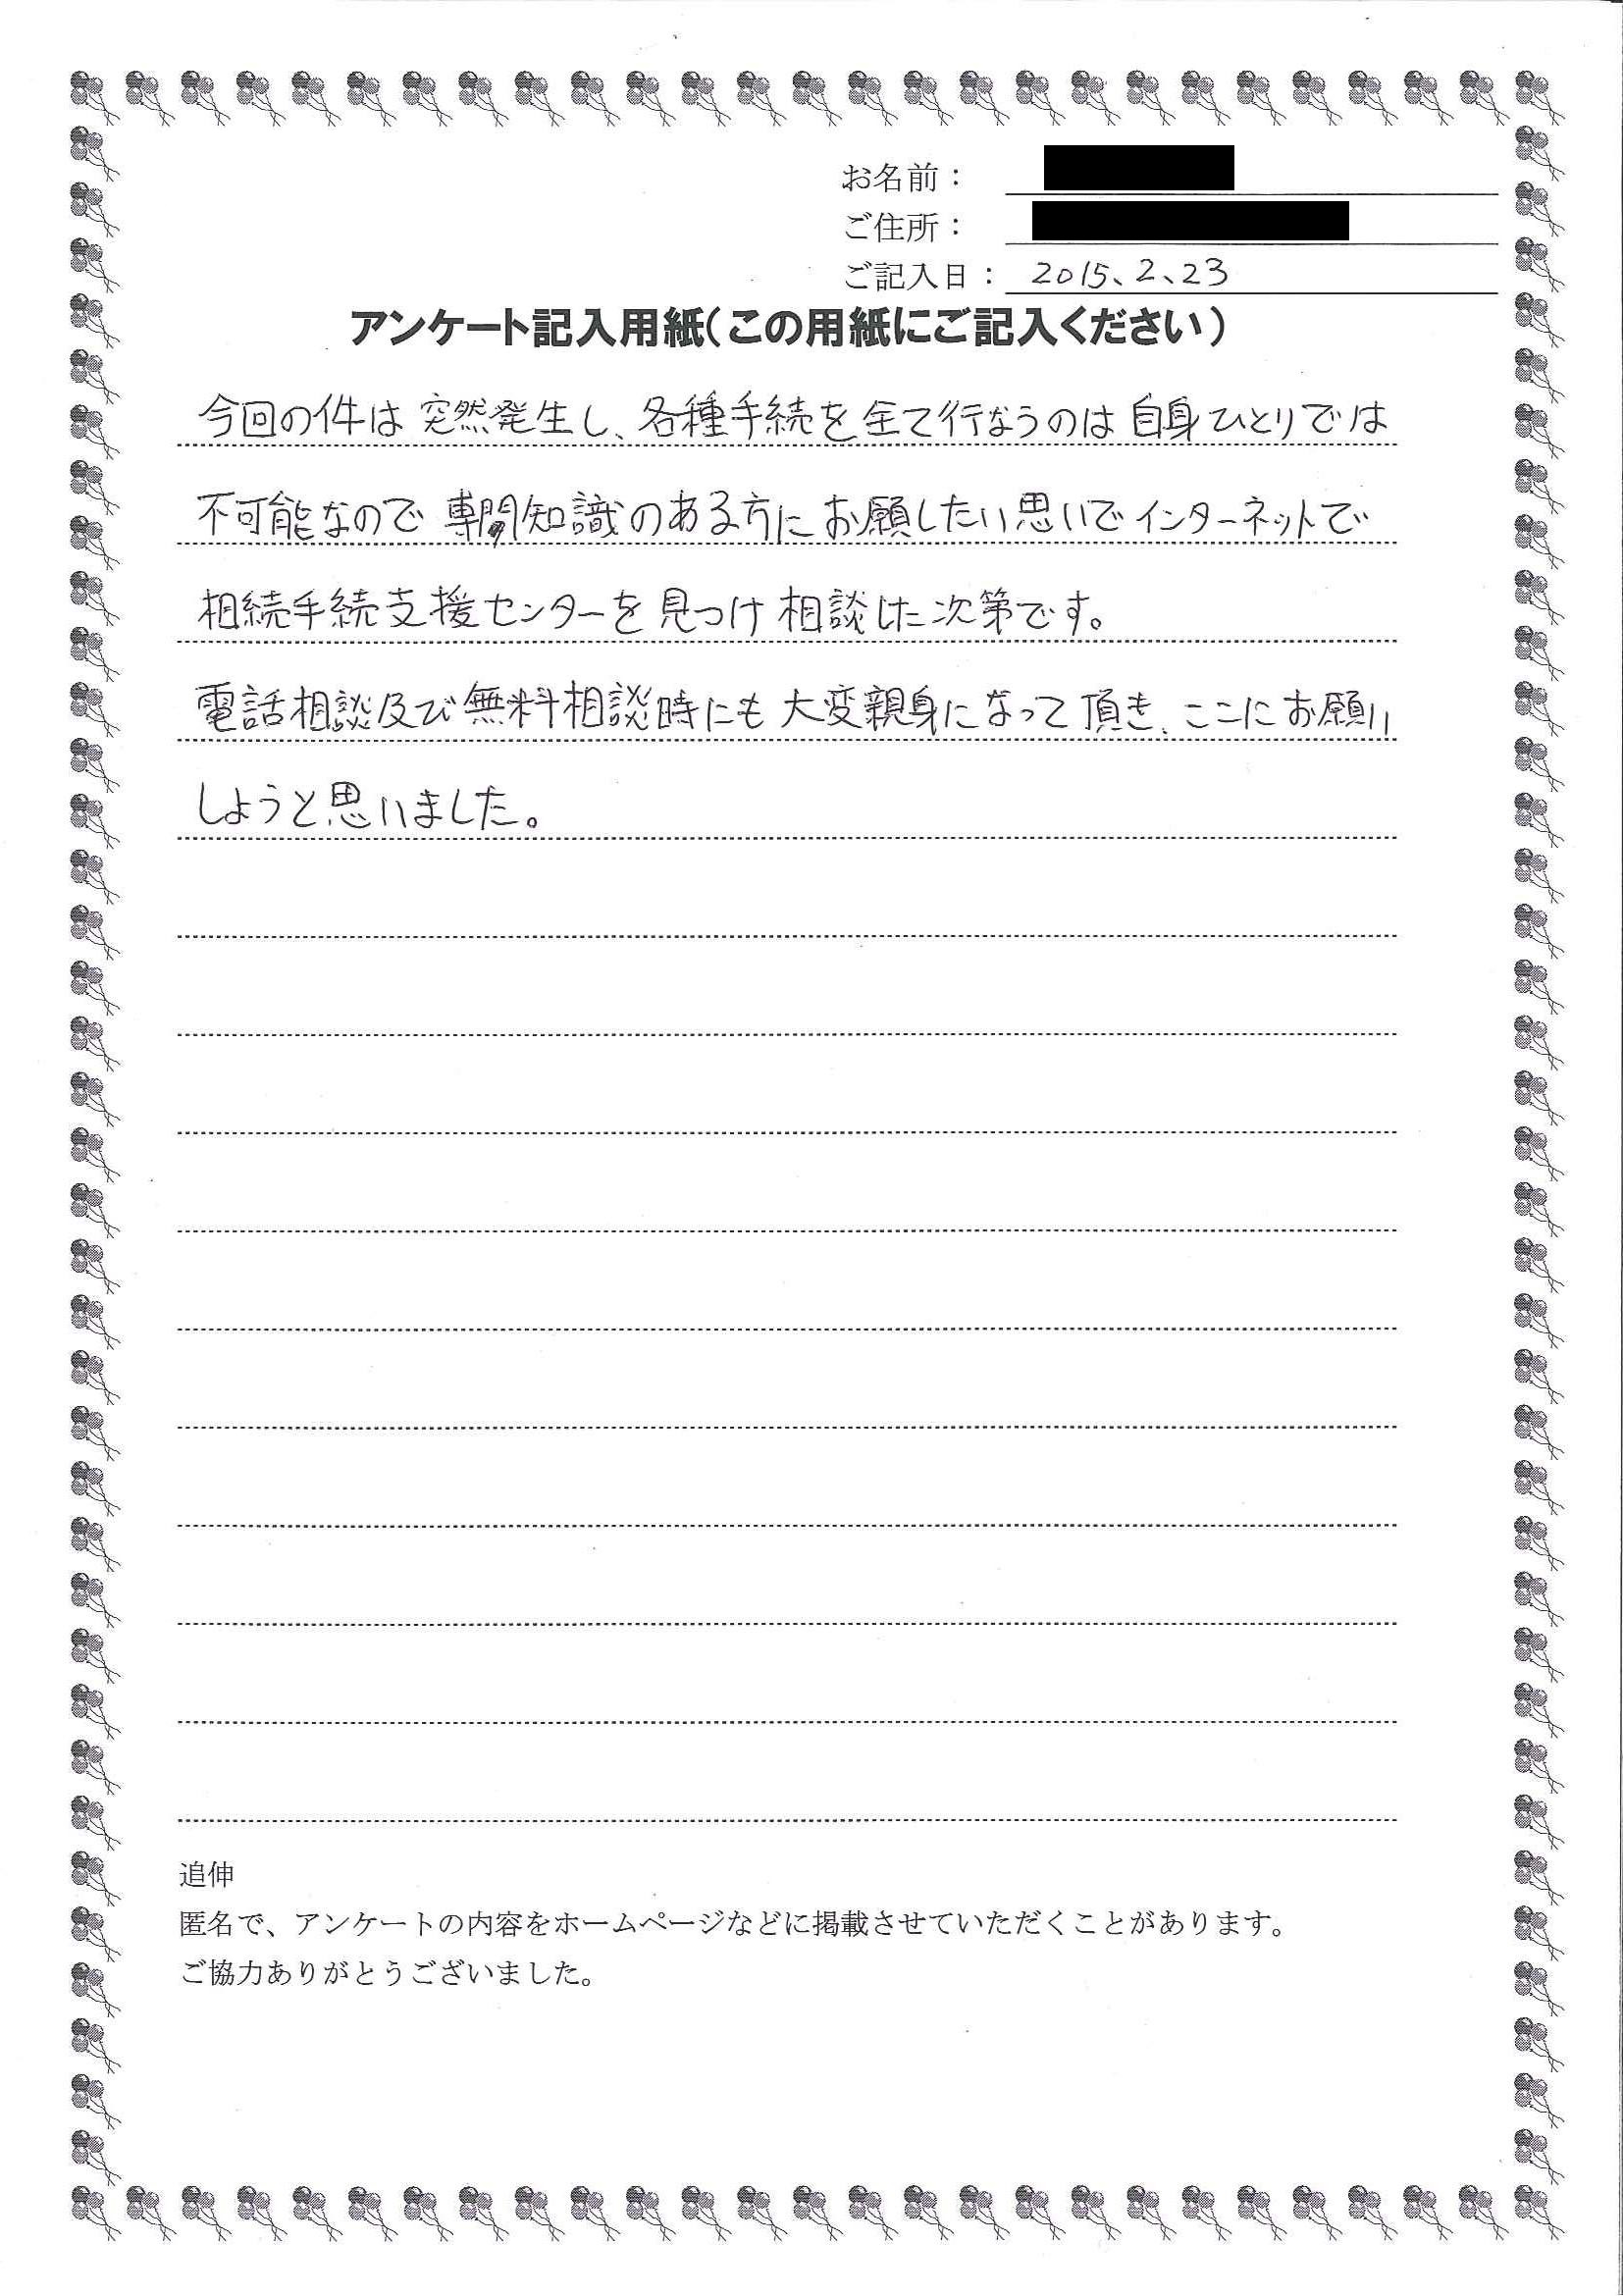 お名前：
ご住所：
ご記入日： 2015、2、23
アンケート記入用紙(この用紙にご記入ください)
今回の件は突然発生し、各種手続を全て行なうのは自身ひとりでは
不可能なので専門知識のある方にお願したい思いでインターネットで
相続手続支援センターを見つけ相談した次第です。
電話相談及び無料相談時にも大変親身になって頂き、ここにお願い
しようと思いました。
追伸
匿名で、アンケートの内容をホームページなどに掲載させていただくことがあります。
ご協力ありがとうございました。